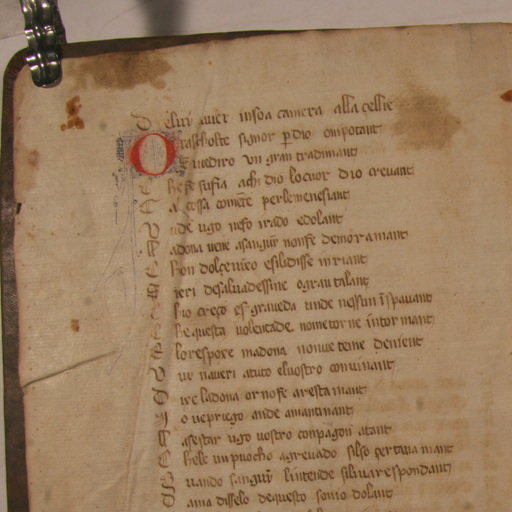 D elui auer insoa camera alla çellie
O raschoIte signor p dio ompotant
E vediro un gran tradimant
he se sufia achi dio lo cuor dio crevant
al cossa comẽte perlemenesiant
nde ugo nefo irado edolant
adona vene asanguī nonfe demoramant
Bon dolçe vico esilidisse inriant
ieri desalvadessine ogran talant
hio creço es graveda unde nessun īspavant
he questa volentade nome torne intormant
lo respoxe madona non ve teme denient
ve naueri atuto eluostro convinant
ixe ladona or no fe arestamant
o ve priego ande amantinant
asestar ugo vostro conpagon atant
hele un puocho agrevado silso çertanamant
uando sanguī lintende sili va respondant
ama disselo de questo sonio dolant